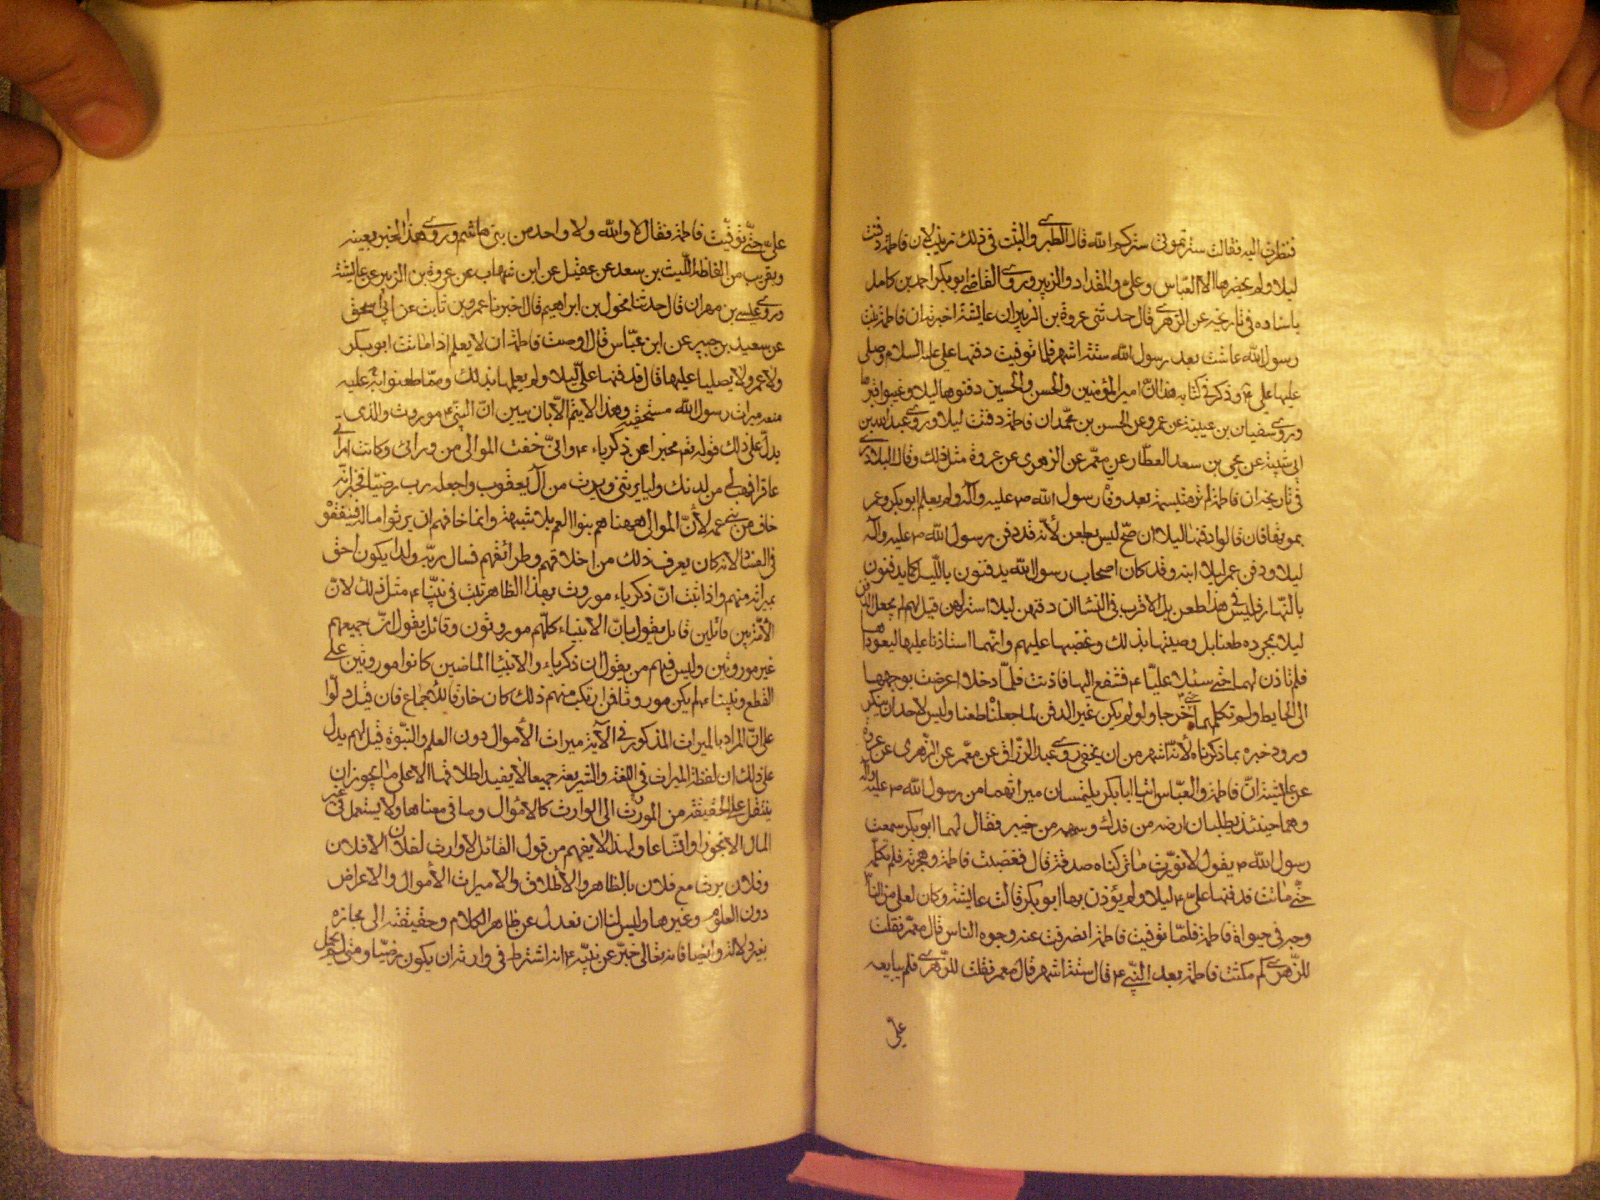 فنظرت اليه فقالت سترتموني ستركم الله قال الطبري والثبت في ذلك زينب لان فاطمة دفنت
ليلا ولم يحضرها الا العبّاس وعلي والمقداد والزبير وروى القاضي ابو بكر احمد بن كامل
باسناده في تاريخه عن الزهري قال حدثني عروة بن الزبير ان عايشة اخبرته ان فاطمة بنت
رسول الله عاشت بعد رسول الله ستة اشهر فلما توفيت دفنها علي عليه السلام وصلى
عليها علي ع وذكر في كتابه هذا انّ امير المؤمنين والحسن والحسين دفنوها ليلا وغيبوا قبرها
وروى سفيان بن عيينة عن عمرو عن الحسن بن محمّد ان فاطمة دفنت ليلا وروى عبد الله بن
ابي شيبة عن يحيى بن سعد العطّار عن معمّر عن الزهري عن عروة مثل ذلك وقال البلاذري
في تاريخه ان فاطمة لم تر متبسمة بعد وفاة رسول الله ص عليه وآله ولم يعلم ابو بكر وعمر
بموتها فان قالوا دفنها ليلا ان صح ليس بطعن لأنه قد دفن رسول الله ص عليه وآله
ليلا ودفن عمر ليلا ابنه وقد كان اصحاب رسول الله يدفنون باللّيل كما يدفنون
بالنّهار فليس في هذا طعن بل الاقرب في النساء ان دفنهن ليلا استر لهن قيل لهم لم يجعل الدفن
ليلا بمجرده طعنا بل وصيتها بذلك وغضبها عليهم وانّهما استاذنا عليها ليعوداها
فلم تاذن لهما حتى سئلا عليّا ع فتشفع اليها فاذنت فلمّا دخلا اعرضت بوجهها
الى الحايط ولم تكلمهما حتى خرجا ولو لم يكن غير الدفن لما جعلناه طعنا وليس لاحد ان ينكر
ورود خبره بما ذكرناه لأنّه اشهر من ان يخفى روى عبد الرزّاق عن معمّر عن الزّهري عن عروة
عن عايشة انّ فاطمة والعبّاس اتيا ابا بكر يلتمسان ميراثهما من رسول الله ص عليه وآله
وهما حينئذ يطلبان ارضه من فدك وسهمه من خيبر فقال لهما ابو بكر سمعت
رسول الله ص يقول لا نورّث ما تركناه صدقة قال فغضبت فاطمة وهجرته فلم تكلّمه
حتى ماتت فدفنها علي ع ليلا ولم يؤذن بها ابو بكر قالت عايشة وكان لعلي من النّاس
وجه في حيواة فاطمة فلمّا توفيت فاطمة انصرفت عنه وجوه الناس قال معمّر فقلت
للزّهري كم مكثت فاطمة بعد النّبي ع قال ستة اشهر قال معمر فقلت للزّهري فلم يبايعه
علي
علي حتى توفّيت فاطمة فقال لا والله ولا واحد من بني هاشم وروى هذا الخبر بعينه
وبقريب من الفاظه اللّيث بن سعد عن عقيل عن ابن شهاب عن عروة بن الزبير عن عايشة
وروى عيسى بن مهران قال حدثنا مخول بن ابراهيم قال اخبرنا عمرو بن ثابت عن ابي اسحق
عن سعيد بن جبير عن ابن عبّاس قال اوصت فاطمة ان لا يعلم اذا ماتت ابو بكر
ولا عمر ولا يصليا عليها قال فدفنها علي ليلا ولم يعلمهما بذلك وممّا طعنوا به عليه
منعه ميراث رسول الله مستحقيه وهذا لا يتم الّا بان نبين انّ النبيّ ع موروث والذي
يدلّ على ذلك قوله تع مخبرا عن زكرياء ع وانّي خفت الموالي من ورائي وكانت امرأتي
عاقرا فهب لي من لدنك وليا يرثني ويرث من آل يعقوب واجعله رب رضيّا فخبر انّه
خاف من بني عمه لأنّ الموالي ههنا هم بنوا العم بلا شبهة وانما خافهم ان يرثوا ماله فينفقوه
في الفساد لانه كان يعرف ذلك من اخلاقهم وطرائقهم فسال ربّه ولدا يكون احق
بميراثه منهم واذا ثبت انّ زكرياء موروث بهذا الظاهر ثبت في نبيّنا ع مثل ذلك لانّ
الأمّة بين قائلين قائل يقول بانّ الانبياء كلّهم موروثون وقائل يقول انّ جميعهم
غير موروثين وليس فيهم من يقول ان زكرياء والانبياء الماضين كانوا موروثين على
القطع ونبينا ع لم يكن موروثا فمن ارتكب منهم ذلك كان خارقا للاجماع فان قيل دلّوا
على انّ المراد بالميراث المذكور في الآية ميراث الأموال دون العلم والنّبوّة قيل لهم يدل
على ذلك ان لفظة الميراث في اللّغة والشريعة جميعا لا يفيد اطلاقها الا على ما يجوز ان
ينتقل على الحقيقة من الموّرث الى الوارث كالاموال وما في معناها ولا يستعمل في غير
المال الا تجوزا واتّساعا ولهذا لا يفهم من قول القائل لا وارث لفلان الا فلان
وفلان يرث مع فلان بالظاهر والاطلاق الا ميراث الأموال والاعراض
دون العلوم وغيرها وليس لنا ان نعدل عن ظاهر الكلام وحقيقته الى مجازه
بغير دلالة وايضا فانه تعالى خبّر عن نبيّه ع انه اشترط في وارثه ان يكون رضيّا ومتى لم يحمل